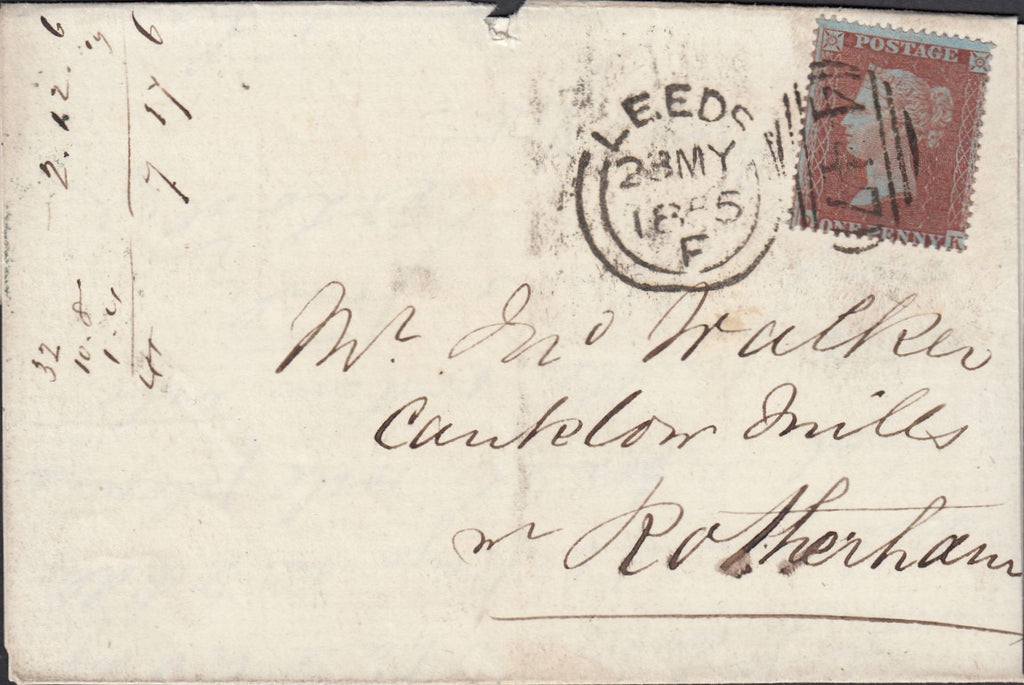 POSTAGE
ONE PENNY
K
447
LEEDS
28MY
1855
F
Mr. Jno Walker
Canklow Mills
nr Rotherham
2.12.6
7 17 6
32
10.8
1.4